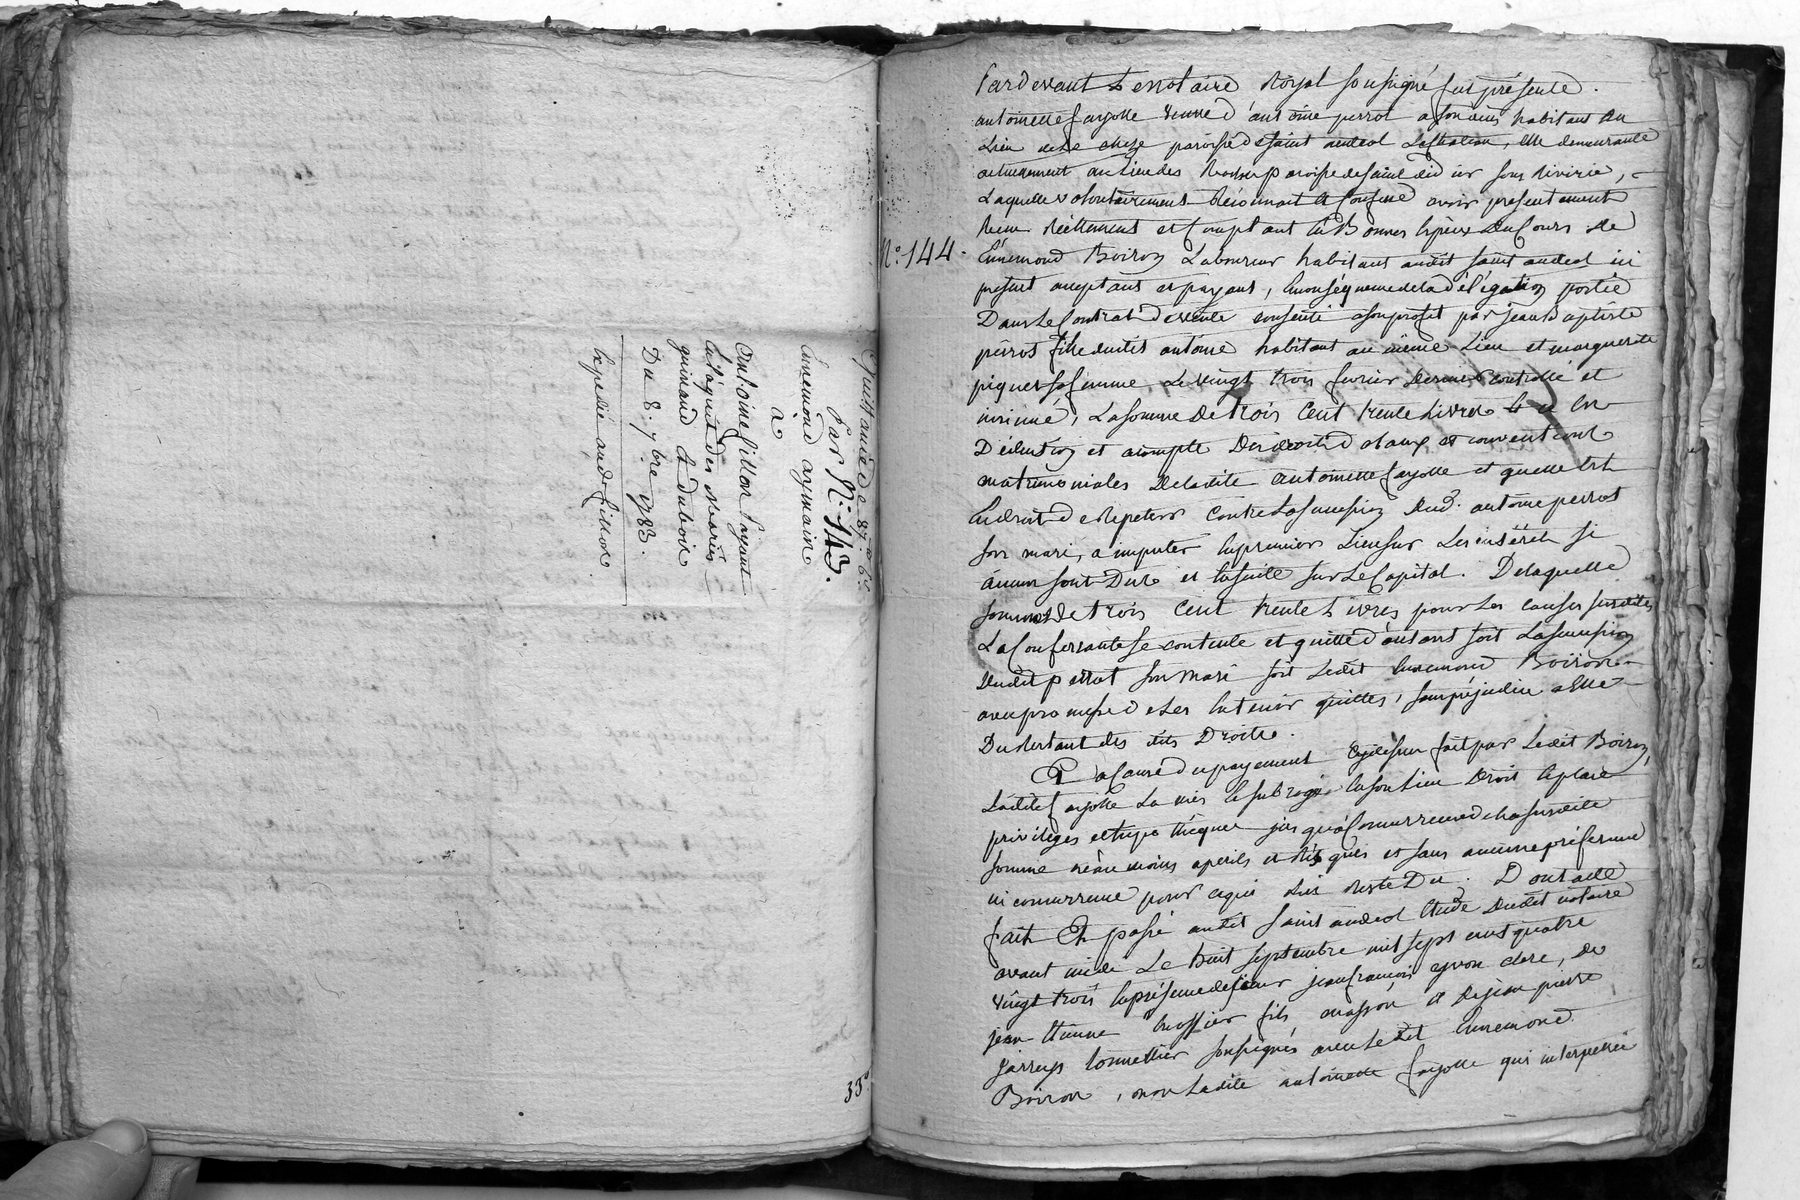 Quittance de 87.# 6s.
Par N.° 143.
Ennemond aymain
a
Antoine fillon Ayant
l'acquit des Mariés
guinand Et duboir
Du 8. 7bre 1783.
Expedié aud. fillon.
33°
N.° 144.
Pardevant Le notaire Royal soussigné fut présente.
antoinette fayolle veuve d'antoine perrot a son vivant habitant du
Lieu de La cheze paroisse de saint andeol La Valla, elle demeurante
actuellement au Lieu des paroisse de saint didier sous riverie,
Laquelle volontairement Reconnoit et Confesse avoir presentement
Receu Réellement et Comptant En Bonnes Espèces Du Cours de
Ennemond Boiron Laboureur habitant audit saint andeol ici
present acceptant et payant, En conséquence de la délégation portée
Dans Le Contrat de vente consenti a son profit par Jean Baptiste
perrot fils dudit antoine habitant au même Lieu et marguerite
piquet sa femme Le vingt trois fevrier dernier Controllé et
insinué, La somme De trois Cent trente Livres Et ce En
Déduction et acompte Des droits dotaux et convention
matrimoniales De ladite antoinette fayolle et quelle Est
En droit de Repeter Contre La succession dud. antoine perrot
son mari, a imputer En premier Lieu sur Les interêts si
aucun sont Dûs et Ensuite sur Le Capital. De laquelle
somme De trois Cent trente Livres pour Les causes susdites
La Confessante se contente et quitte d'autant soit La succession
dudit perrot son Mari soit Ledit Ennemond Boiron
avec promesse de Les En tenir quittes, sans préjudice a Elle
Du Restant des dits Droits.
Et a Cause du payement Cy dessus fait par Ledit Boiron,
Ladite fayolle La mis Et subrogé En son Lieu Droit Et place
privileges et hypothèques jusqu'a Concurrence de la susdite
somme néanmoins a perils et Risques et sans aucune préference
ni concurrence pour ce qui Lui Reste Du. Dont acte
fait Et passé audit saint andeol Etude Dudit notaire
avant midi Le huit septembre mil sept cent quatre
vingt trois En présence de sieur jean francois gyvon clerc, de
jean Etienne fils masson et de jean pierre
Tonnellier soussignés avec Ledit Ennemond
Boiron, non Ladite antoinette fayolle qui interpellée